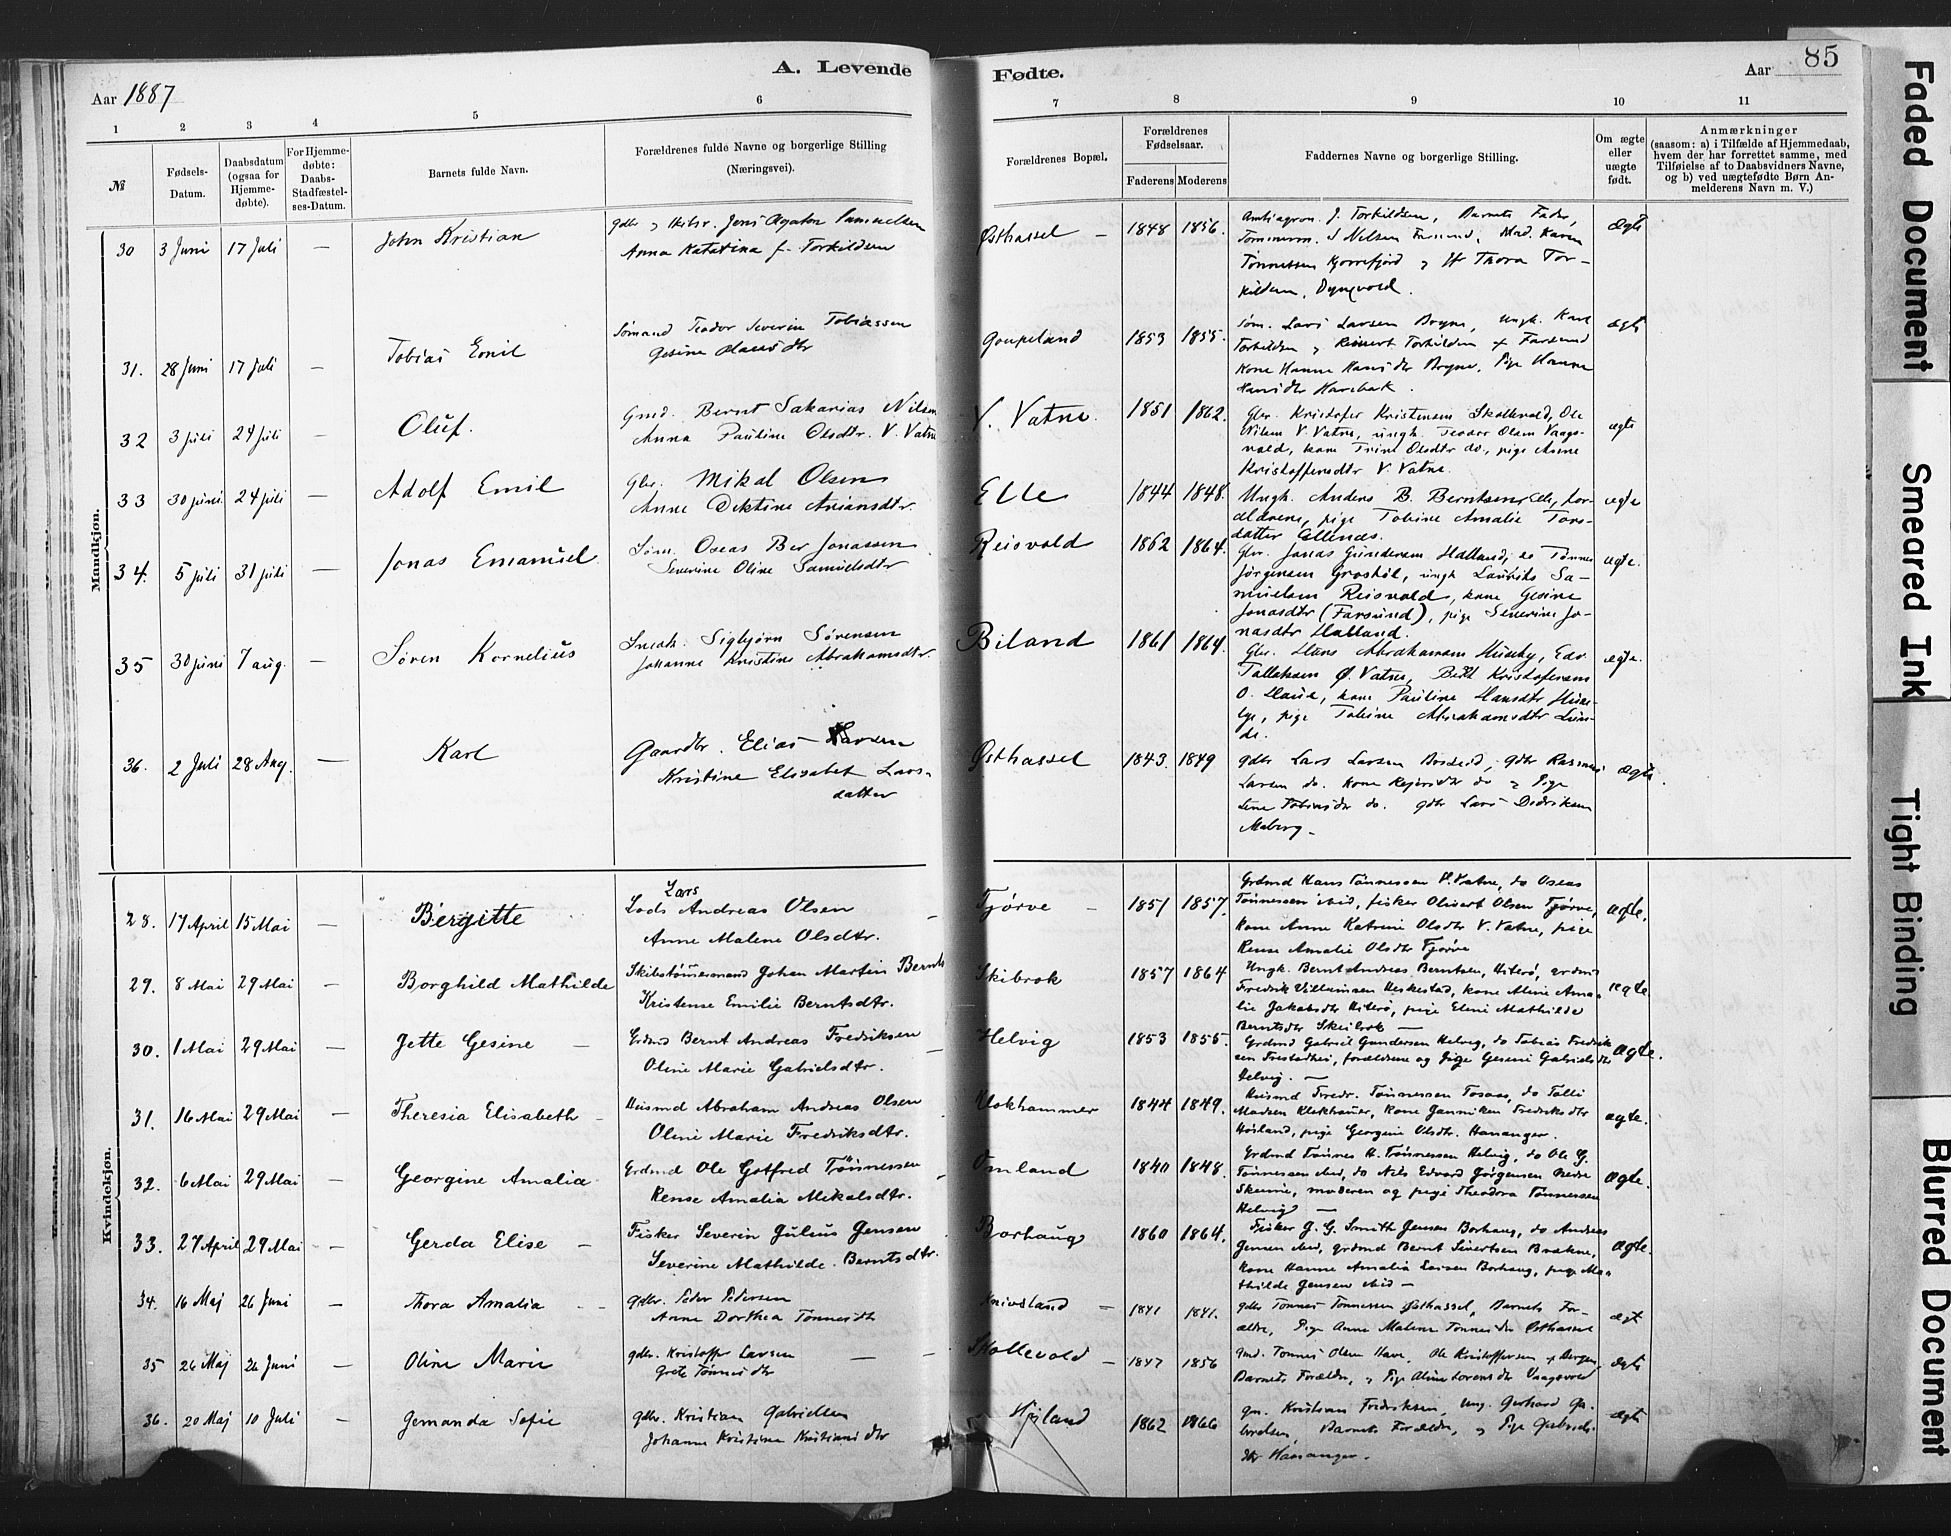 A. Levende Fødte.
Aar 1887
Aar 85
1 2 3 4 5 6 7 8 9 10 11
№
Fødsels-Datum.
Daabsdatum (ogsaa for Hjemme-døbte).
For Hjemme-døbte: Daabs-Stadfæstel-ses-Datum.
Barnets fulde Navn.
Forældrenes fulde Navne og borgerlige Stilling (Næringsvei).
Forældrenes Bopæl.
Forældrenes Fødselsaar.
Faderens Moderens
Faddernes Navne og borgerlige Stilling.
Om ægte eller uægte født.
Anmærkninger (saasom: a) i Tilfælde af Hjemmedaab, hvem der har forrettet samme, med Tilføielse af to Daabsvidners Navne, og b) ved uægtefødte Børn An-melderens Navn m. V.)
Mandkjøn.
30 3 Juni 17 Juli — John Kristian
Jens Agaton Samuelsen
Anna Katatina f. Torkildsen
Østhassel — 1848 1856.
J. Torkildsen, Barnets Fader,
Tønnessen Kjørrefjord & Thora Tor-
kildsen,
ægte
31. 28 Juni 17 Juli — Tobias Emil
Sømand Teodor Severin Tobiassen
Gesine Olausdtr
Goupeland 1853 1855.
Lars Larsen Bryne, Ungk. Karl
Torkildsen & Reinert Torkildsen f Farsund
Kone Hanne Hansdtr Bryne, Pige Hanne
Hansdtr Havebak.
ægte
32 3 juli 24 juli — Oluf.
Gmd. Bernt Sakarias Nilsen
Anna Pauline Olsdtr. V. Vatne
V. Vatne. 1851 1862.
Gbr. Kristofer Kristensen Skollevold, Ole
Nilsen V. Vatne, ungk. Teodor Olsen Vaags-
vold, kone Trine Olsdtr do., pige Anne
Kristoffersdtr V. Vatne.
ægte
33 30 juni 24 juli — Adolf Emil
Gbr. Mikal Olsen
Anne Diktine Aniansdtr.
Elle 1844 1848.
Ungk. Anders B. Berntsen Elle, for-
ældrene, pige Tobine Amalie Tors-
datter Ellenes.
ægte
34. 5 juli 31 juli — Jonas Emanuel
Søm. Oseas Ber Jonassen
Severine Oline Samuelsdtr
Reisvold 1862 1864.
Gbr. Jonas Gundersen Halland, do Tønnes
Jørgensen Grostøl, ungk Laurits Sa-
muelsen Reisvold, kone Gesine
Jonasdtr (Farsund), pige Severine Jo-
nasdtr Halland.
ægte.
35 30 juni 7 aug. — Søren Kornelius
Sigbjørn Sørensen
Johanne Kristine Abrahamsdtr.
Biland 1861 1864.
Gbr. Hans Abrahamsen Huseby, Edv.
Tallaksen Ø. Vatne, Kristofersen
O. Haue, kone Pauline Hansdtr Huse-
bye, pige Tobine Abrahamsdtr Lun-
de.
ægte.
36. 2 Juli 28 Aug. — Karl
Gaardbr. Elias Larsen
Kristine Elisabet Lars-
datter
Østhassel 1843. 1849
gdbr Lars Larsen gdbr Rasmus
Larsen do. Kone do & Pige
Lene Tobiasdtr do. gdbr Lars Didriksen
Maberg.
ægte.
Kvindekjøn.
28. 17 April 15 Mai — Bergitte
Lars
Lods Andreas Olsen
Anne Malene Olsdtr.
Tjørve — 1851 1857.
Grdmd Hans Tønnessen V. Vatne, do Oseas
Tønnessen ibid, fisker Olivert Olsen Tjørve,
kone Anne Katrine Olsdtr V. Vatne, pige
Rense Amalie Olsdtr Tjørve
ægte.
29. 8 Mai 29 Mai — Borghild Mathilde
Skibstømmermand Johan Martin Bernts
Kristense Emilie Berntsdtr.
Skibrok 1857 1864
Ungk. Bernt Andreas Berntsen, Hiterø, grdmd
Fredrik Villumsen Heskestad, kone Aline Ama-
lie Jakobsdtr Hiterø, pige Elene Mathilde
Berntsdtr Skeibrok —
ægte.
30. 1 Mai 29 Mai — Jette Gesine —
Grdmd Bernt Andreas Fredriksen
Oline Marie Gabrielsdtr.
Helvig 1853 1855.
Grdmd Gabriel Gundersen Helvig, do Tobias Fredrik-
sen forældrene og Pige Gesine Gabrielsdtr
Helvig. —
ægte.
31. 16 Mai 29 Mai — Theresia Elisabeth —
Husmd Abraham Andreas Olsen
Oline Marie Fredriksdtr.
Klokhammer 1844 1849.
Husmd Fredr. Tønnessen Tosaas, do Tolli
Madsen Klokham̄er, kone Janniken Fredriksdtr
Høiland, pige Georgine Olsdtr. Hananger.
ægte.
32. 6 Mai 29 Mai — Georgine Amalia
Grdmd Ole Gotfred Tønnessen
Rense Amalia Mikalsdtr.
Omland 1840 1848.
Grdmd Tønnes H. Tønnessen Helvig, do Ole G.
Tønnessen ibid, do Nils Edvard Jørgensen Nedre
Skeime, moderen og pige Theodora Tønnessen
Helvig —
ægte.
33. 27 April 29 Mai — Gerda Elise —
Fisker Severin Julius Jensen
Severine Mathilde Berntsdtr.
Borhaug 1860 1864.
Fisker J. G. Smith Jensen Borhaug, do Andreas
Jensen ibid, grdmd Bernt Sivertsen Brækne,
kone Hanne Amalia Larsen Borhaug, pige Ma-
thilde Jensen ibid —
ægte.
34. 16 Maj 26 Juni — Thora Amalia —
gdbr. Peder Pedersen
Anne Dorthea Tønnesdtr
Knivsland — 1841 1841.
gdbr Tønnes Tønnessen Østhassel, Barnets For-
ældre, Pige Anne Malene Tønnesdtr Østhassel
ægte
35 26 Maj 26 Juni — Oline Marie
gdbr. Kristoffer Larsen —
Grete Tønnesdtr
Skollevold — 1847 1856
gmd. Tønnes Olsen Haue, Ole Kristoffersen
Barnets Forældre, & Pige Aline Lorensdtr Vaagsvold
ægte
36. 20 Maj 10 Juli — Gemanda Sofie
gdbr. Kristian Gabrielsen
Johanne Kristine Kristiansdtr
Højland 1862 1866
Kristian Fredriksen, Ung. Gerhard Ga-
brielsen, Barnets Forældre, & Pige Gabriels-
dtr Hananger.
ægte
Faded Document
Smeared Ink
Tight Binding
Blurred Document